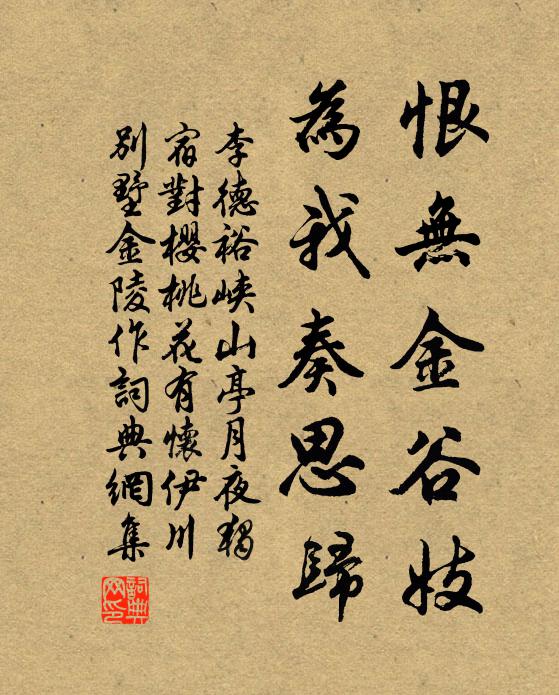 恨無金谷妓
為我奏思歸
李德裕峽山亭月夜獨
宿對櫻桃花有懷伊川
別墅金陵作詞典網集
詞典网印